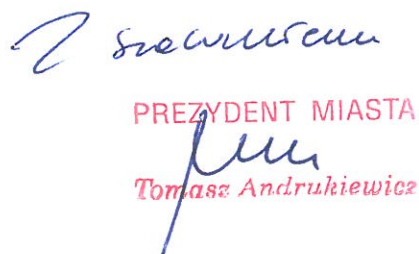 Z szacunkiem
PREZYDENT MIASTA
Tomasz Andrukiewicz